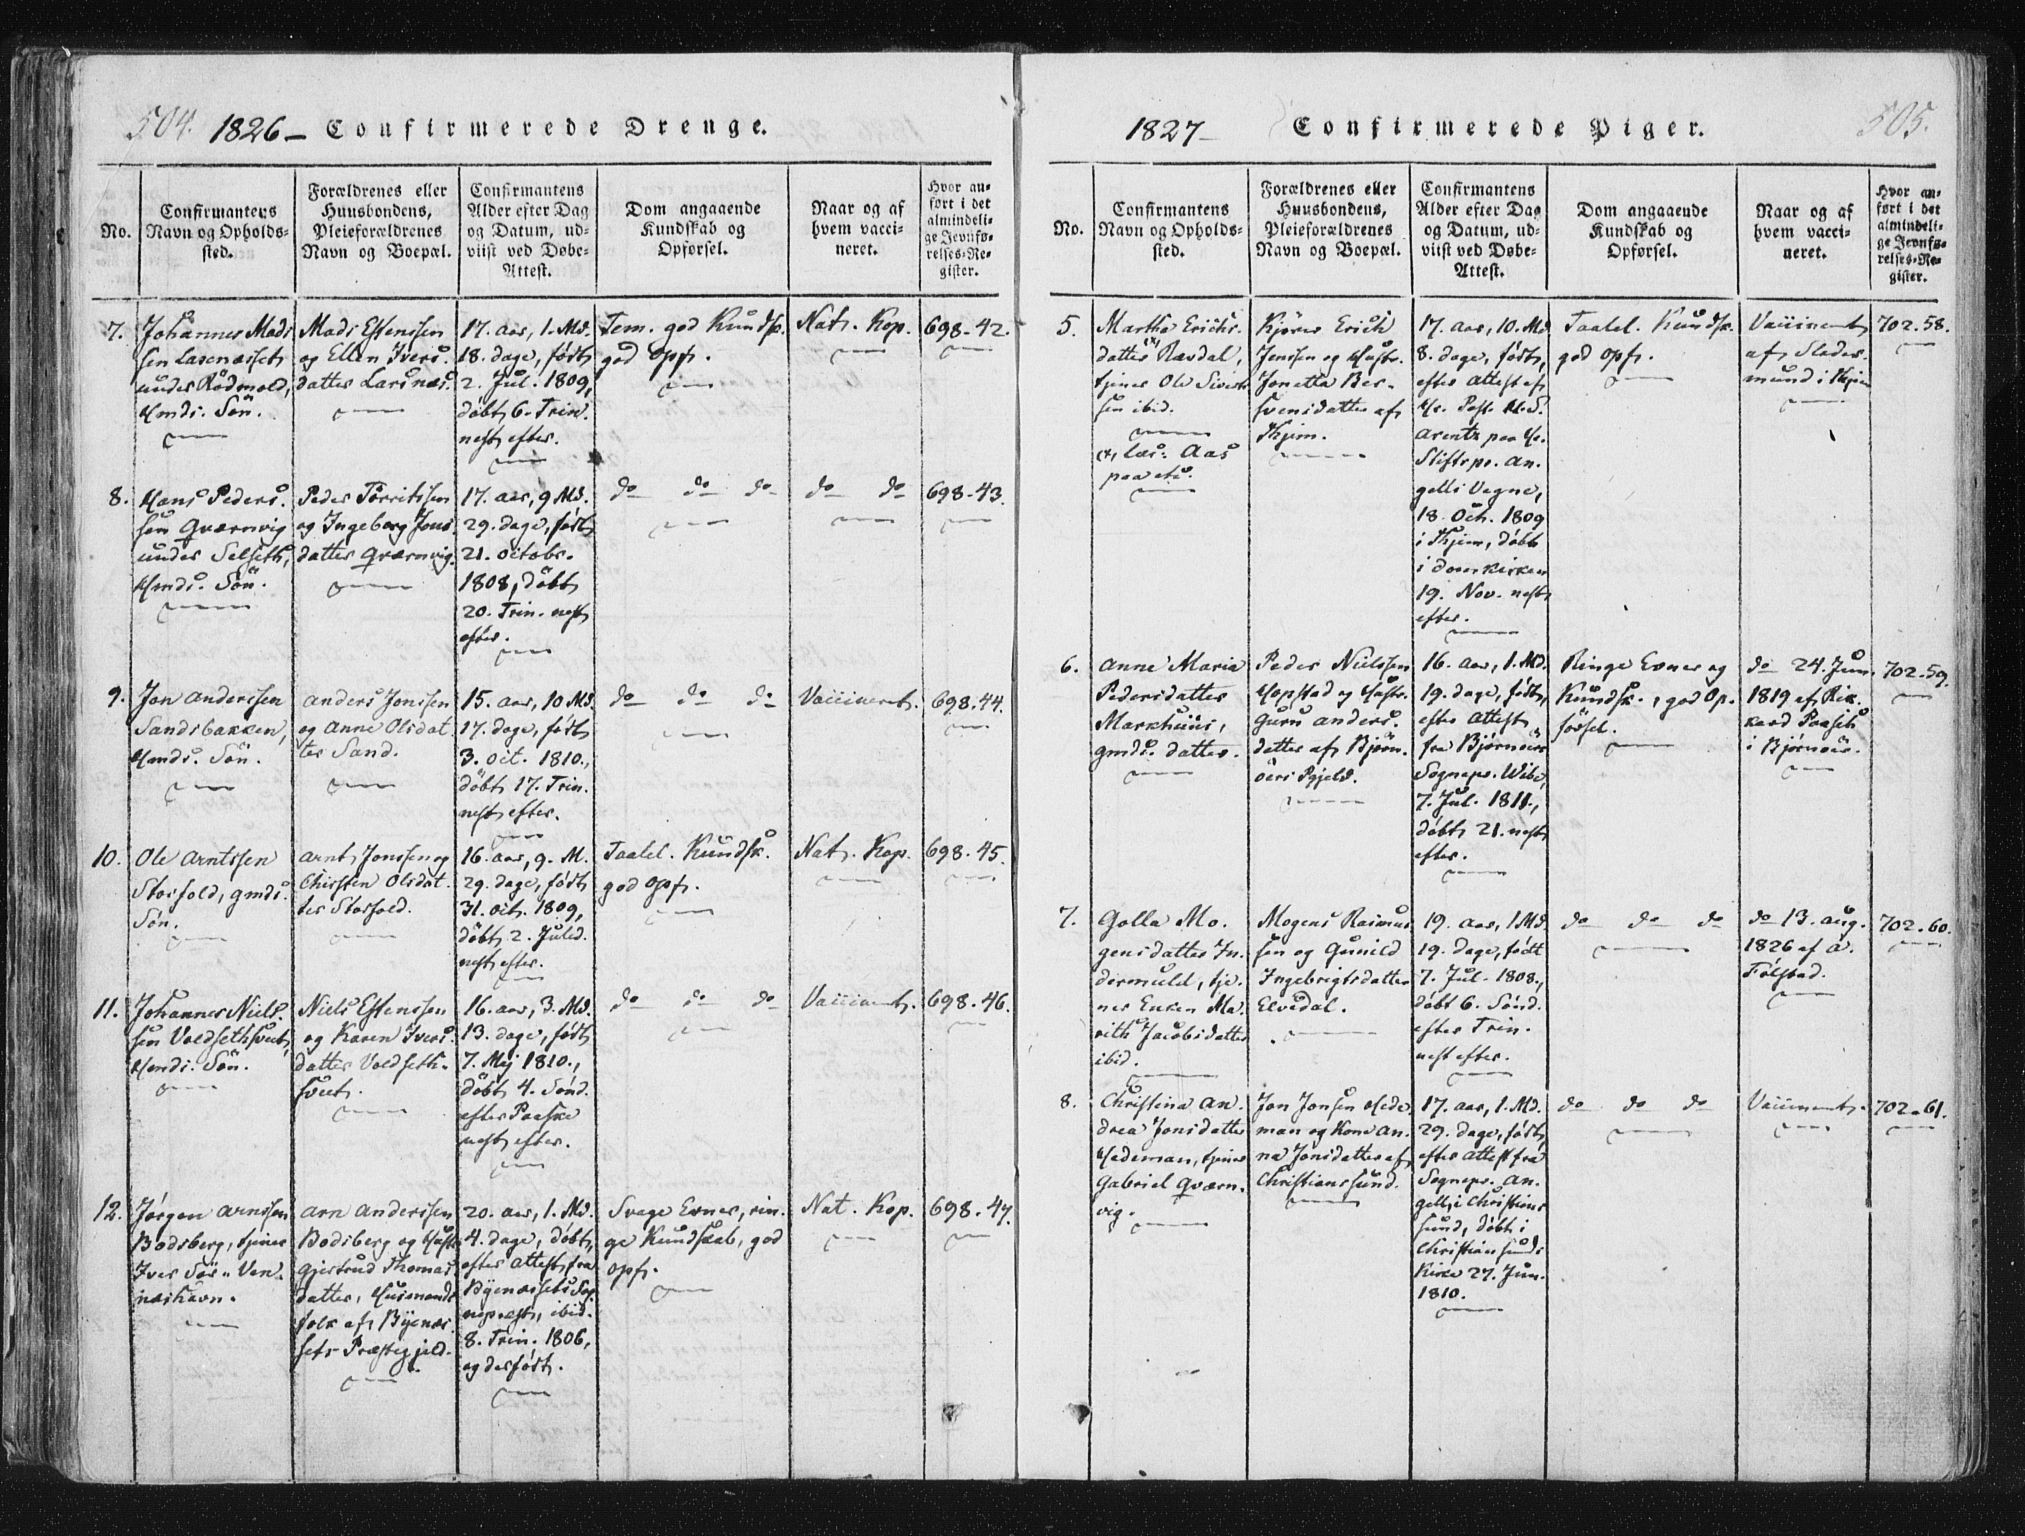 504. 1826 – Confirmerede Drenge.
No.
Confirmantens
Navn og Opholds-
sted.
Forældrenes eller
Huusbondens,
Pleieforældrenes
Navn og Boepæl.
Confirmantens
Alder efter Dag
og Datum, ud-
viist ved Døbe-
Attest.
Dom angaaende
Kundskab og
Opførsel.
Naar og af
hvem vacci-
neret.
Hvor an-
ført i det
almindeli-
ge Jevnfø-
relses-Re-
gister.
7.
Johannes Mads
sen Larsnæsset
under Rødmold,
Hmds. Søn.
Mads Estenssen
og Ellen Ivers
datter Larsnæs.
17. aar, 1. Md.
18. dage, født
2. Jul. 1809,
døbt 6. Trin.
nest efter.
Tem. god Kundsk.
god opf.
Nat. Kop.
698-42.
8.
Hans Peders.
sen Qværnvig
under Selseth,
Hmds. Søn.
Peder Torritssen
og Ingeborg Jons
datter Qværnvig.
17. aar, 9 Md.
29. dage, født
21. octobr.
1808, døbt
20. Trin. nest
efter.
do do do
do do
698-43.
9.
Jon Anderssen
Sandsbakken,
Hmds. Søn.
Anders Jonssen
og Anne Olsdat
ter Sand.
15. aar, 10 Md.
17. dage, født
3. oct. 1810.,
døbt 17. Trin.
nest efter.
do do do
Vaccineret.
698-44.
10.
Ole Arntssen
Storfold, gmds.
Søn.
Arnt Jonssen og
Chirsten Olsdat.
ter Storfold.
16. aar, 9. M.
29. dage, født
31. oct. 1809,
døbt 2. Juled.
nest efter.
Taalel. Kundsk.
god opf.
Nat. Kop.
698-45.
11.
Johannes Niels.
sen Voldsethsvet,
Hmds. Søn.
Niels Estenssen
og Karen Ivers.
datter Voldseth-
svet.
16. aar, 3. Md.
13. dage, født
7. Mej 1810.,
døbt 4. Sønd.
efter Paaske
nest efter.
do do do
Vaccineret.
698-46.
12.
Jørgen Arnssen
Bodsberg, tjener
Iver Sør. Ven.
næshavn.
Arn Anderssen
Bodsberg og Hustr.
Gjertrud Thomas
datter, Husmands
folk af Byenæs
sets Præstegjeld.
20. aar, 1. Md.
4. dage, døbt,
efter Attest fra
Byenæssets Sog
nepræst, ibid.
8. Trin. 1806,
og der født.
Svage Evner, rin.
ge Kundskab, god
opf.
Nat. Kop.
698-47.
1827 – Confirmerede Piger. 505.
No.
Confirmantens
Navn og Opholds-
sted.
Forældrenes eller
Huusbondens,
Pleieforældrenes
Navn og Boepæl.
Confirmantens
Alder efter Dag
og Datum, ud-
viist ved Døbe-
Attest.
Dom angaaende
Kundskab og
Opførsel.
Naar og af
hvem vacci-
neret.
Hvor an-
ført i det
almindeli-
ge Jevnfø-
relses-Re-
gister.
5.
Martha Erichs.
datter (x) Rævdal,
tjener Ole Sivert
sen ibid.
(x, læs: Aas
Kjører Erich
Jenssen og Hustr.
Jonetta Ber.
svensdatter af
Thjem.
17. aar, 10. Md.
8. dage, født,
efter Attest af
Hr. Past.
Arentz paa Hr.
Stiftspr. An.
gells Vegne,
18. Oct. 1809
i Thjem, døbt
i domkirken
19. Nov. nest
efter.
Taalel. Kundsk.
god opf.
Vaccineret
af Slades.
mund i Thjem
702-58.
6.
Anne Maria
Pedersdatter
Markhuus,
gmds. datter.
Peder Nielssen
Hopstad og Hustr.
Guru Anders.
datter af Bjørn.
øers Pgjeld.
16. aar, 1. Md.
19. dage, født,
efter Attest
fra Bjørnøers
Sognepr. Wibe,
7. Jul. 1811.,
døbt 21. nest
efter.
Ringe Evner og
Kundsk., god Op.
førsel.
do 24. Jun.
1819 af Rik.
kard Paasch
i Bjørnøer.
702-59.
7.
Golla Mo.
gensdatter In.
dermuld, tje.
ner Enken Ma.
rith Jacobsdatter
ibid.
Mogens Rasmus
sen og Gunild
Ingebrigtsdatter
Elvedal.
19. aar, 1 Md.
19. dage, født
7. Jul. 1808.,
døbt 6. Sønd.
efter Trin.
nest efter.
do do do
do 13. Aug.
1826 af A.
Følstad.
702-60.
8.
Christina An.
drea Jonsdatter
Hedeman, tjener
Gabriel Qværn.
vig.
Jon Jonsen Hede
man og Kone An.
na Jonsdatter af
Christianssund.
17. aar, 1. Md.
29. dage, født,
efter Attest fra
Sognepr. An.
gell i Christians
sund, døbt i
Christiansunds
Kirke 27. Jun.
1810.
do do do
Vaccineret.
702-61.